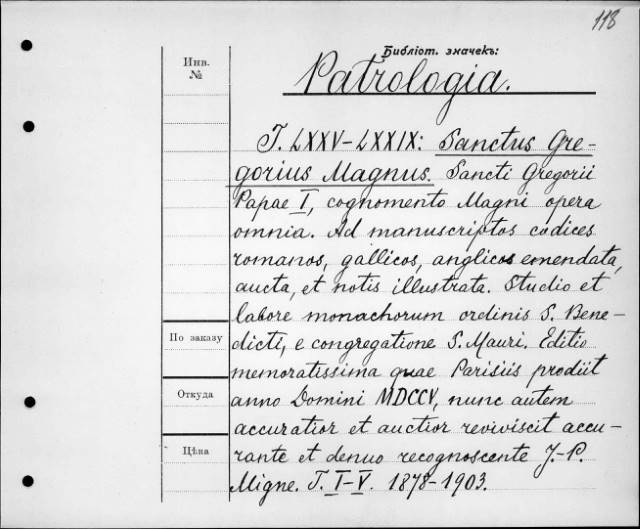 118
Библіот. значекъ:
Инв.
№
Patrologia.
T. LXXV-LXXIX: Sanctus Gre-
gorius Magnus. Sancti Gregorii
Papae I, cognomento Magni opera
omnia. Ad manuscriptos codices
romanos, gallicos, anglicos emendata,
aucta, et notis illustrata. Studio et
labore monachorum ordinis S. Bene-
По заказу
dicti, e congregatione S. Mauri. Editio
memoratissima quae Parisiis prodiit
Откуда
anno Domini MDCCV, nunc autem
accuratior et auctior reviviscit accu-
Цѣна
rante et denuo recognoscente J.-P.
Migne. T. I-V. 1878-1903.